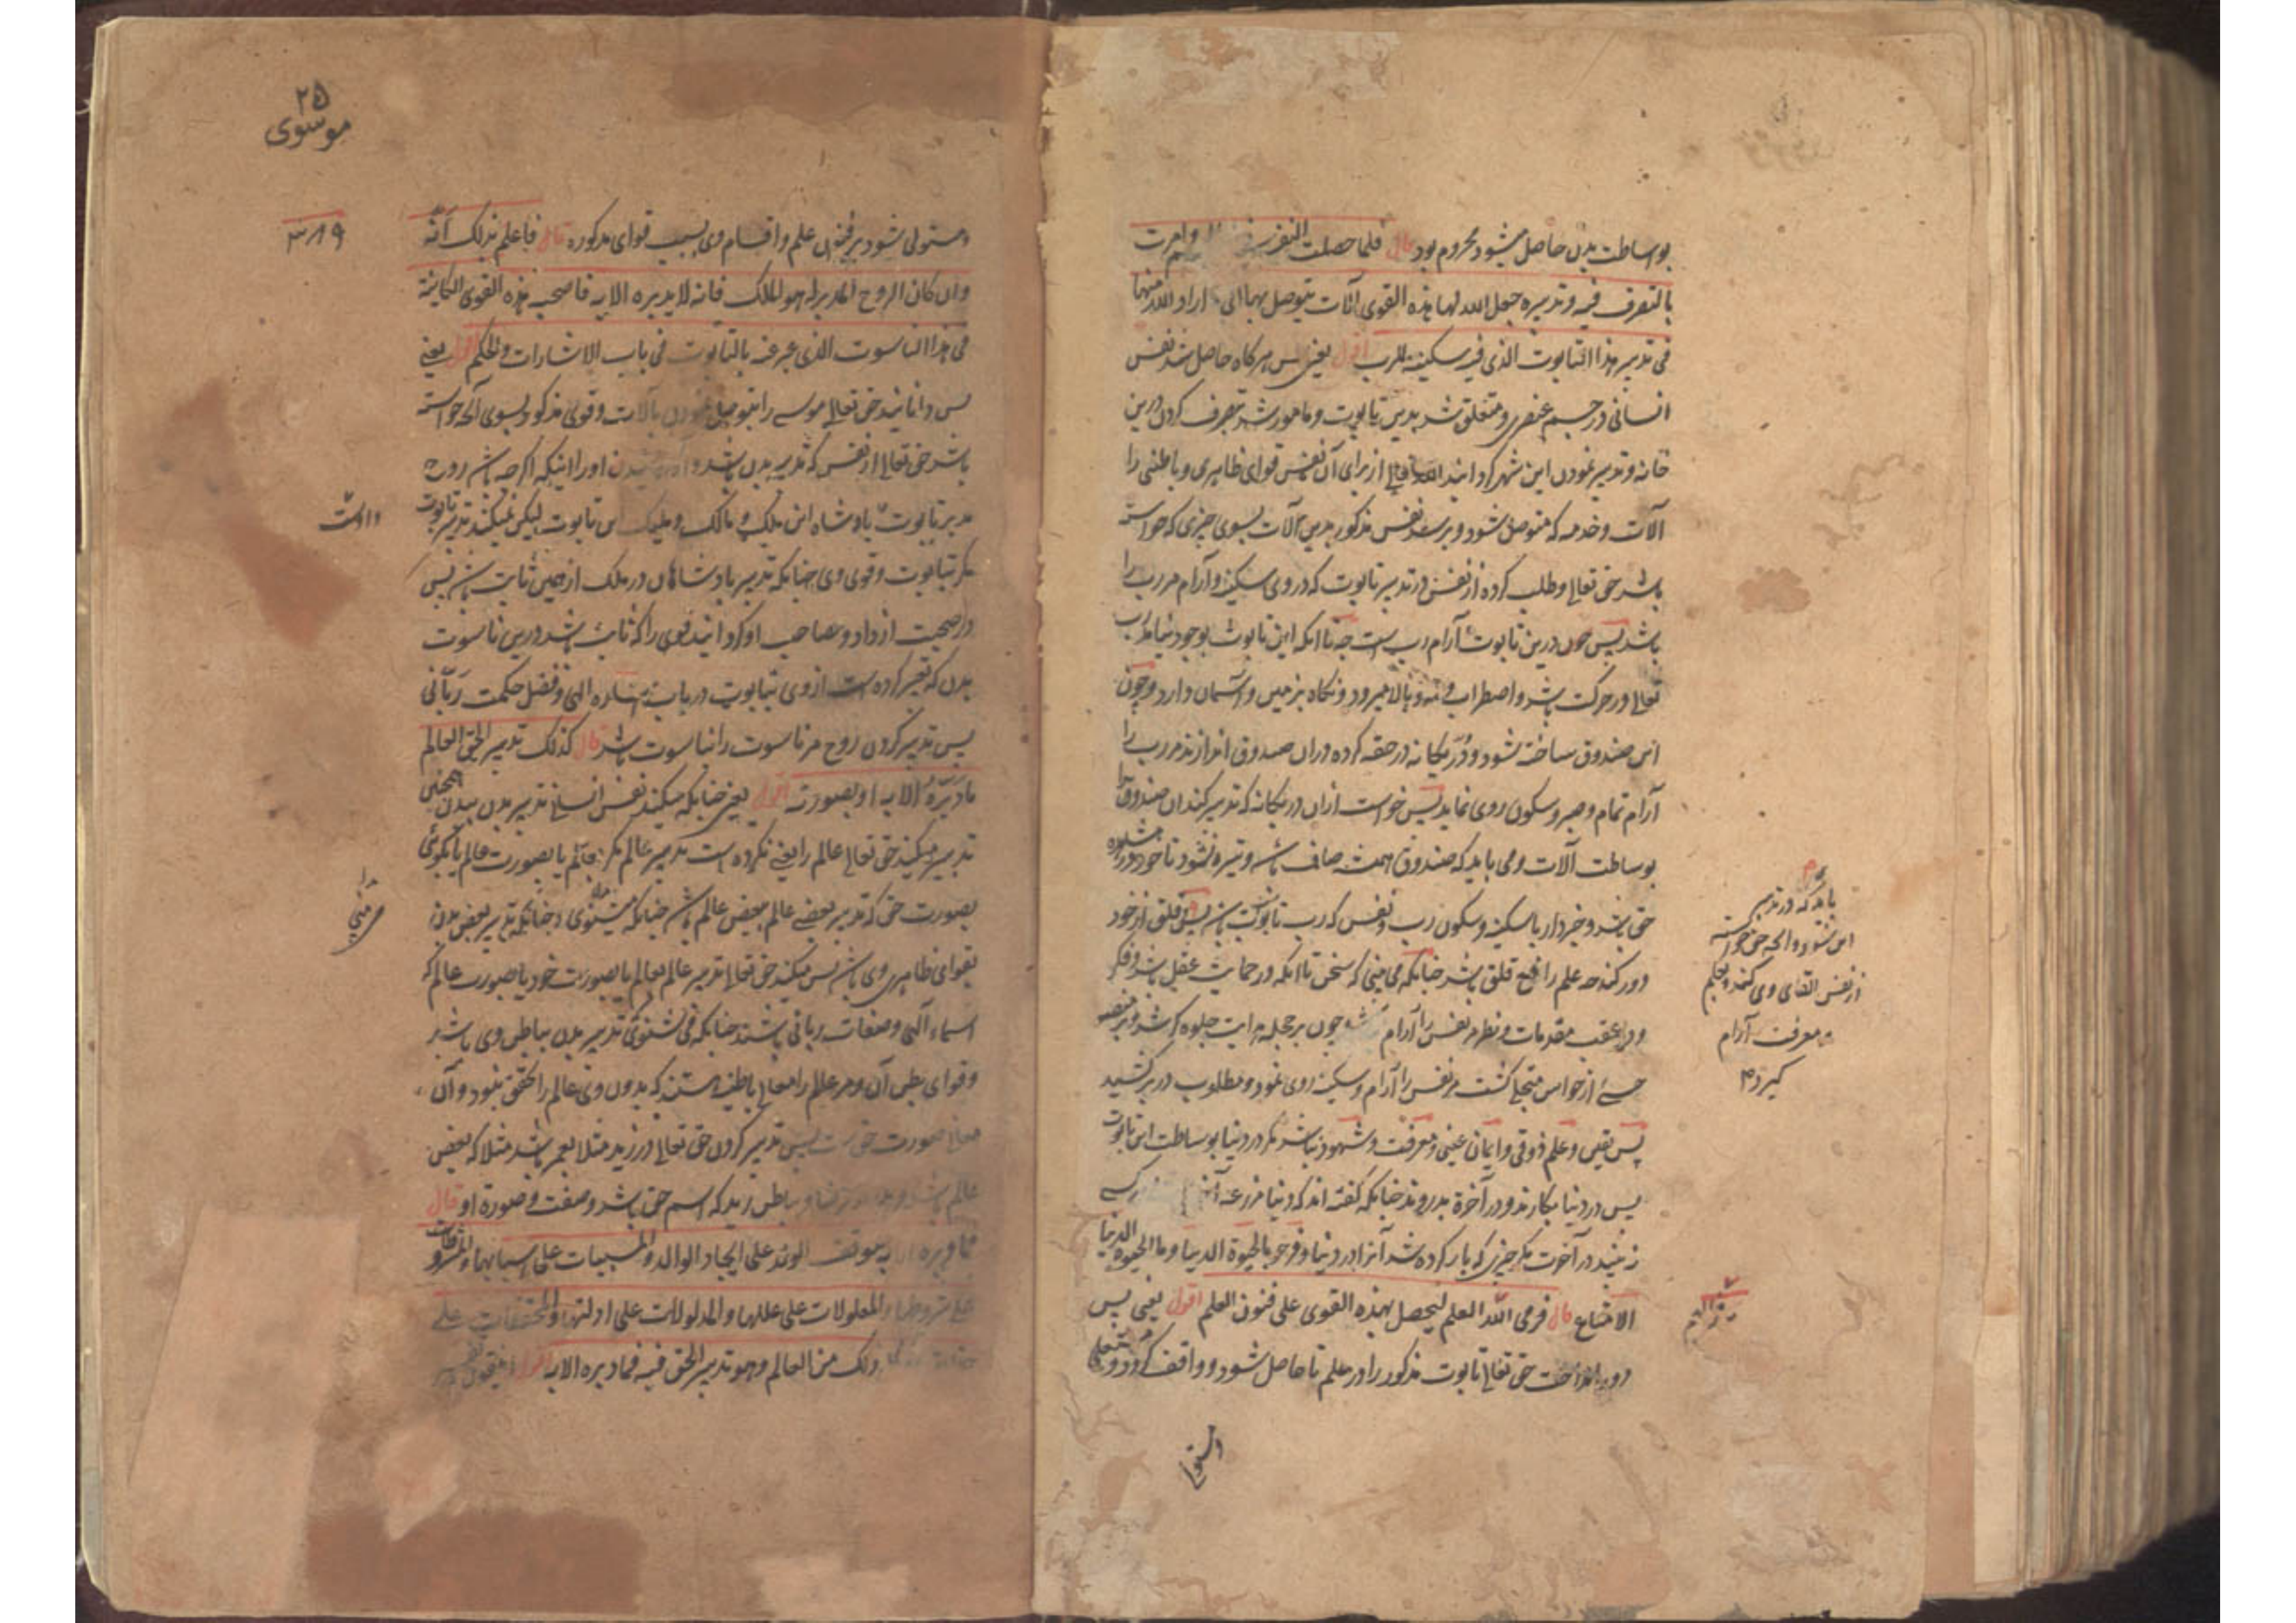 بوساطت بدن حاصل میشود محروم بود قال فلما حصلت النفس وامرت
بالتصرف فیه وتدبیره جعل الله لها هذه القوی آلات یتوصل بها الی اراد الله منها
فی تدبیر هذا التابوت الذی فیه سکینة للرب اقول یعنی پس هر گاه حاصل شد نفس
انسانی در جسم عنصری ومتعلق شد بدین تابوت ومامور شد بتصرف کردن درین
خانه وتدبیر نمودن این شهر گردانید الله تعالی از برای آن نفس قوای ظاهری وباطنی را
آلات وخدمه که متوصل شود وبرسد نفس مذکور بدین آلات بسوی چیزی که خواسته
باشد حق تعالی وطلب کرده از نفس در تدبیر تابوت که در وی سکینه وآرام مر رب را
باشد پس چون درین تابوت آرام رب است چه تا آنکه این تابوت بوجود نیامد رب
تعالی در حرکت باشد واضطراب وبالا میرود ونگاه بزمین وآسمان دارد وچون
این صندوق ساخته شود ودُرّ یگانه در حقه کرده دران صندوق اندازند مر رب را
آرام تمام وصبر وسکون روی نماید پس خواست ازان در یگانه که تدبیر کند ان صندوق را
بوساطت آلات ومی باید که صندوق همیشه صاف باشد وتیره نشود تا خود در مشاهده
حق باشد وخبردار با سکینه وسکون رب ونفس که رب تابوت پس قلق از خود
دور کند چه علم رافع قلق باشد چنانکه می بینی که سخن تا آنکه در حمایت عقل باشد وفکر
ودر عقب مقدمات ونظر مر نفس را آرام چون بر حجله هدایت جلوه گر شد وبر منصه
حسے از حواس متجلی گشت مر نفس را آرام وسکینه روی نمود ومطلوب در بر کشید
پس یقین وعلم ذوقی وایمان عینی ومعرفت وشهود نباشد مگر در دنیا بوساطت این تابوت
پس در دنیا بکارند ودر آخرة بدروند چنانکه گفته اند که دنیا مزرعه
نه بیند در آخرت مگر چیزی که بار کرده شد آنرا در دنیا وفرحوا بالحیوة الدنیا وما الحیوة الدنیا
الا متاع قال فرمی الله العلم لیحصل بهذه القوی علی فنون العلم اقول یعنی پس
حق تعالی تابوت مذکور را در علم تا حاصل شود وواقف گردد
باید که در تدبیر
این شود والحه حق خواسته
از نفس القای وی کند وبعلم
معرفت آرام
گیرد
۲۵
موسوی
۳۸۹
مستولی شود بر فنون علم واقسام وی بسبب قوای مذکوره قال فاعلم بذلک انه
وان کان الروح المدبر له هو الملک فانه لا یدبره الا به فاصحبه هذه القوی الکائنة
فی هذا الناسوت الذی عبر عنه بالتابوت فی باب الاشارات والحکم اقول یعنی
پس دانانید حق تعالی موسے را بآلات وقوی مذکوره بسوی آنچه خواسته
باشد حق تعالی از نفس که تدبیر بدن باشد اورا اینکه اگر چه باشد روح
مدبر تابوت پادشاه این ملک ومالک این تابوت لیکن نمیکند تدبیر تابوت
مگر بتابوت وقوی وی چنانکه تدبیر پادشاهان در ملک ثابت پس
در صحبت ار داد ومصاحب او گردانید قوی را که ثابت شد درین ناسوت
بدن که تعبیر کرده است از وی بتابوت در باب اشاره الهی وفضل حکمت ربانی
پس تدبیر کردن روح مر ناسوت را بناسوت باشد قال کذلک تدبیر الحق العالم
ما دبره الا به او بصورته اقول یعنی چنانکه میکند نفس انسانی تدبیر بدن ببدن همچنین
تدبیر میکند حق تعالی عالم را یعنی نکرده است تدبیر عالم مگر بعالم یا بصورت عالم یا بگوئی
بصورت حق که تدبیر بعضے عالم ببعض عالم باشد چنانکه میشنوی وچنانکه تدبیر بعض بدن
بقوای ظاهری وی باشد پس میکند حق تعالی تدبیر عالم بعالم یا بصورت خود یا صورت عالم که
اسماء الهی وصفات ربانی باشند چنانکه می شنوی تدبیر بدن بباطن وی باشد
وقوای بطن آن ومر عالم را معانی باطنیه هستند که بدون وی عالم را تحقق نبود وآن
معانی صورت حق است پس تدبیر کردن حق تعالی در زید مثلا بعمر باشد مثلا که بعض
عالم باشد وباطن زید که اسم حق باشد وصفت وصورة او قال
فما دبره الا به کتوقف الولد علی ایجاد الوالد والمسببات علی اسبابها والمشروطات
علی شروطها والمعلولات علی عللها والمدلولات علی ادلتها والمحققات علی
ذلک من العالم وهو تدبیر الحق فیه فما دبره الا به